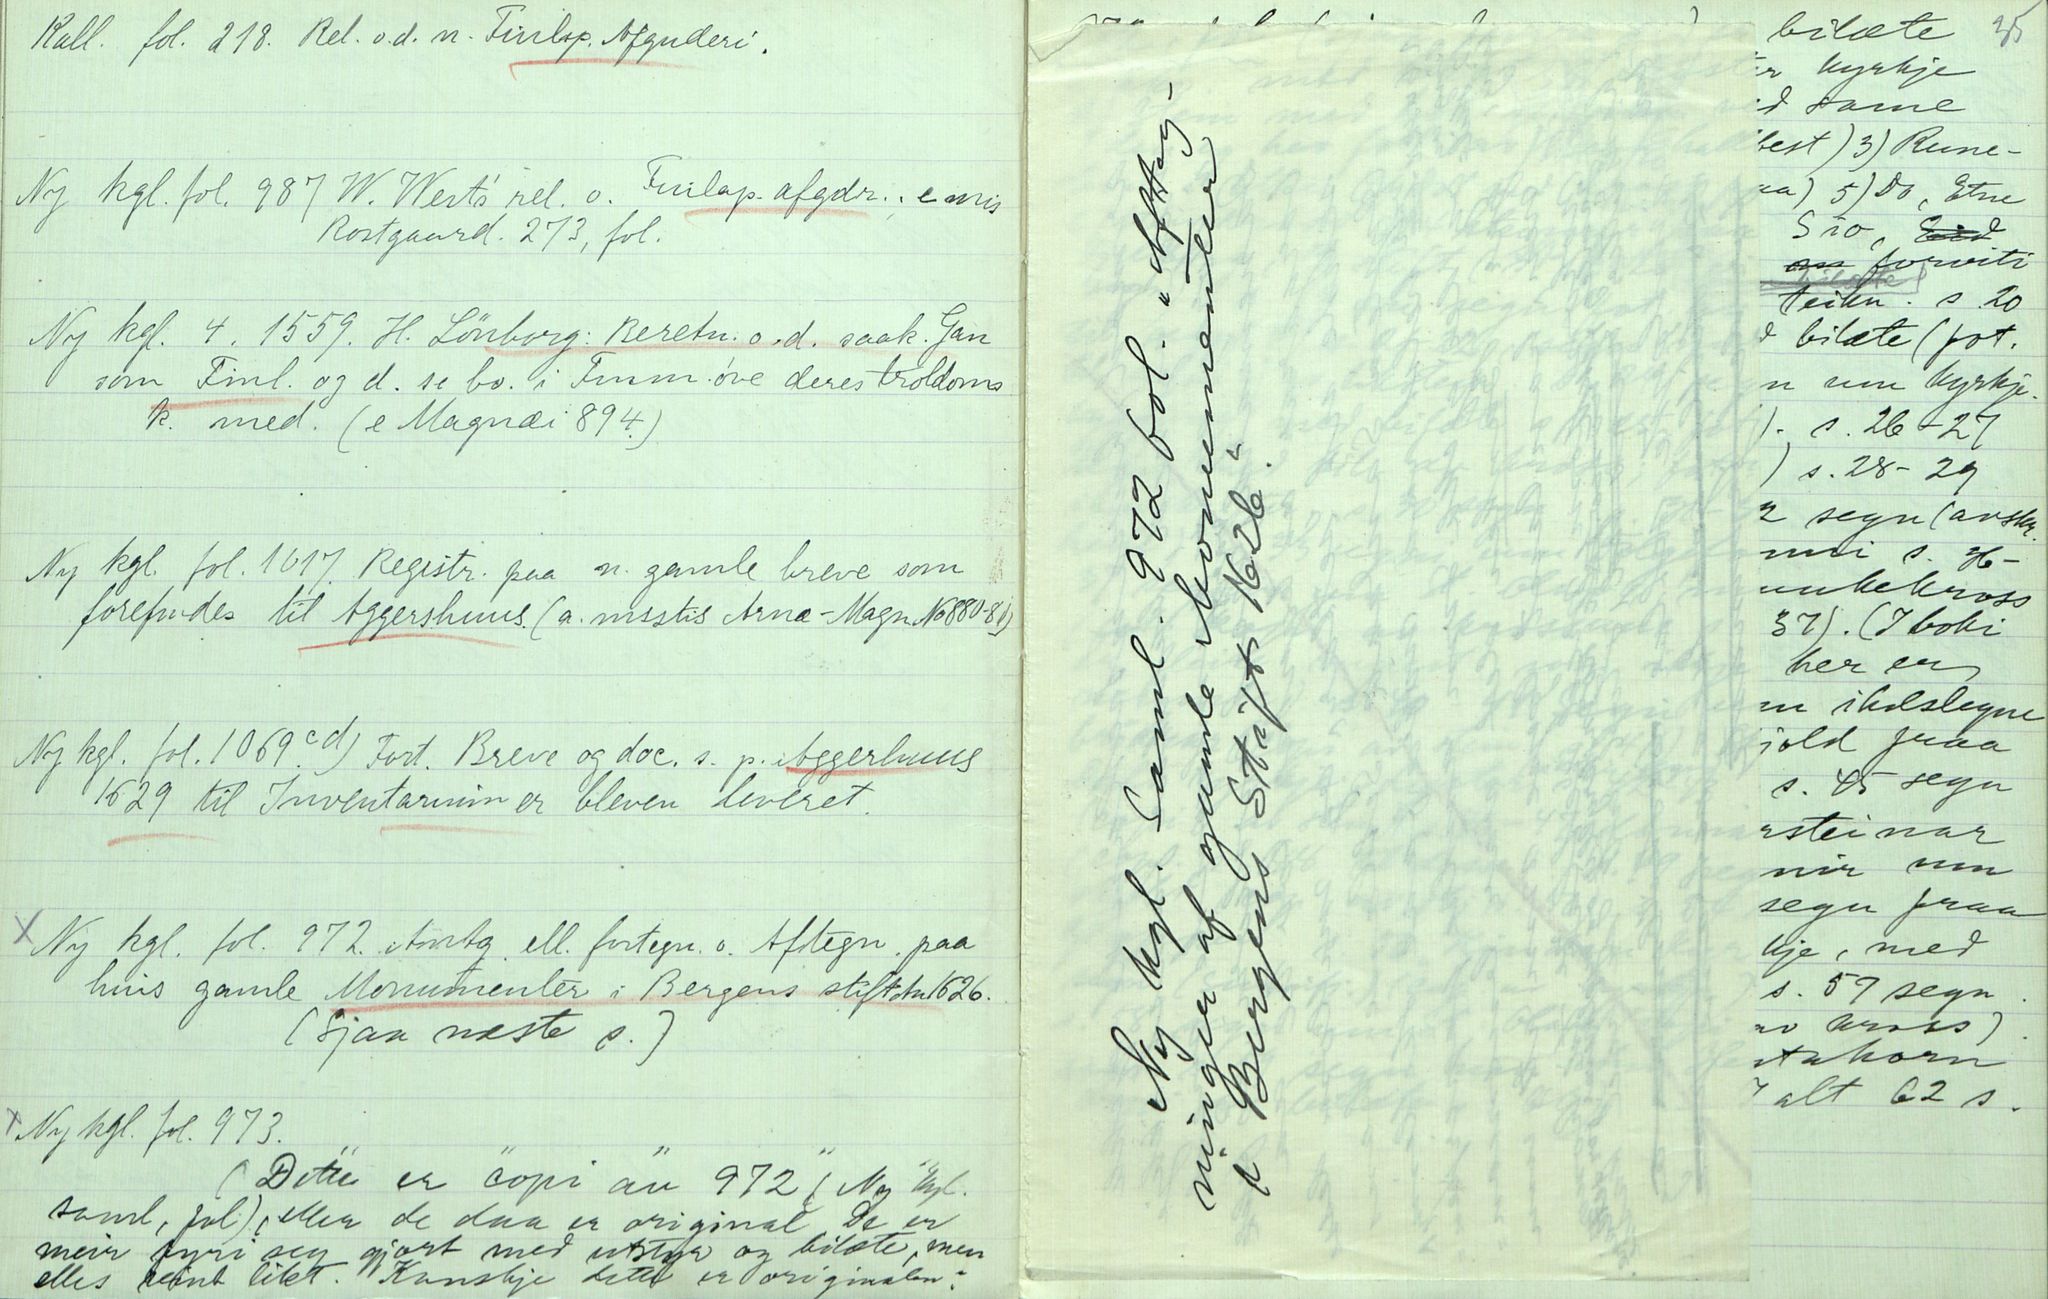 Kall. fol. 218. Rel. o. d. n. Finlap. Afguderi.
Ny kgl. fol. 987 W. Wests rel. o. Finlap. afgdr. . e mss
Rostgaard. 273, fol.
Ny kgl. 4. 1559. H. Lönborg: Beretn. o. d. saak. Gan
som Finl. og d. se bo. i Finm. öve deres troldoms
k. med. (e Magnæi 894.)
Ny kgl. fol. 1017. Registr. paa n. gamle breve som
forefindes til Aggershuus. (a. msstis Arnæ-Magn. No 880-81)
Ny kgl. fol. 1069. c d) Fort. Breve og doc. s. p. Aggerhuus
1629 til Inventarium er bleven leveret.
x Ny kgl. fol. 972. Antg. ell. fortegn. o. Aftegn. paa
huis gamle Monumenter i Bergens stift An 1626.
(Sjaa næste s.)
x Ny kgl. fol. 973.
(Dette er copi au 972 (Ny kgl.
saml, fol), eller de daa er original. De er
meir fyri seg gjort med utstyr og bilæte, men
elles reint likt. Kanskje dette er originalen.
Ny kgl. Saml. 972 bol. "Afteg-
ninger af gamle Monumenter
i Bergens Stift 1626".
bilæte 35
kyrkje
same
best) 3) Rune-
5) Do, Etne
Sio,
forviti
teikn. s 20
bilæte (fot.
um kyrkje.
s. 26-27
) s. 28-29
segn (avskr.
s.
unkekross
37). (I boki
her er
skolslegne
jold fraa
s. 45 segn
rsteinar
um
segn fraa
kje, med
s. 59 segn.
kross)
horn
alt 62 s.